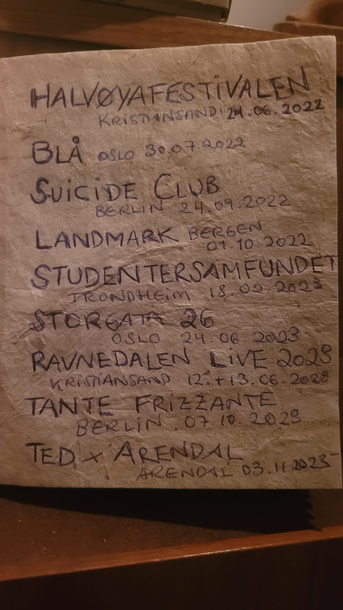 HALVØYAFESTIVALEN
KRISTIANSAND 24.06.2022
BLÅ OSLO 30.07.2022
SUICIDE CLUB
BERLIN 24.09.2022
LANDMARK BERGEN
01.10.2022
STUDENTERSAMFUNDET
TRONDHEIM 18.02.2023
STORGATA 26
OSLO 24.06.2023
RAVNEDALEN LIVE 2023
KRISTIANSAND 12.+13.06.2023
TANTE FRIZZANTE
BERLIN 07.10.2023
TED x ARENDAL
ARENDAL 03.11.2023